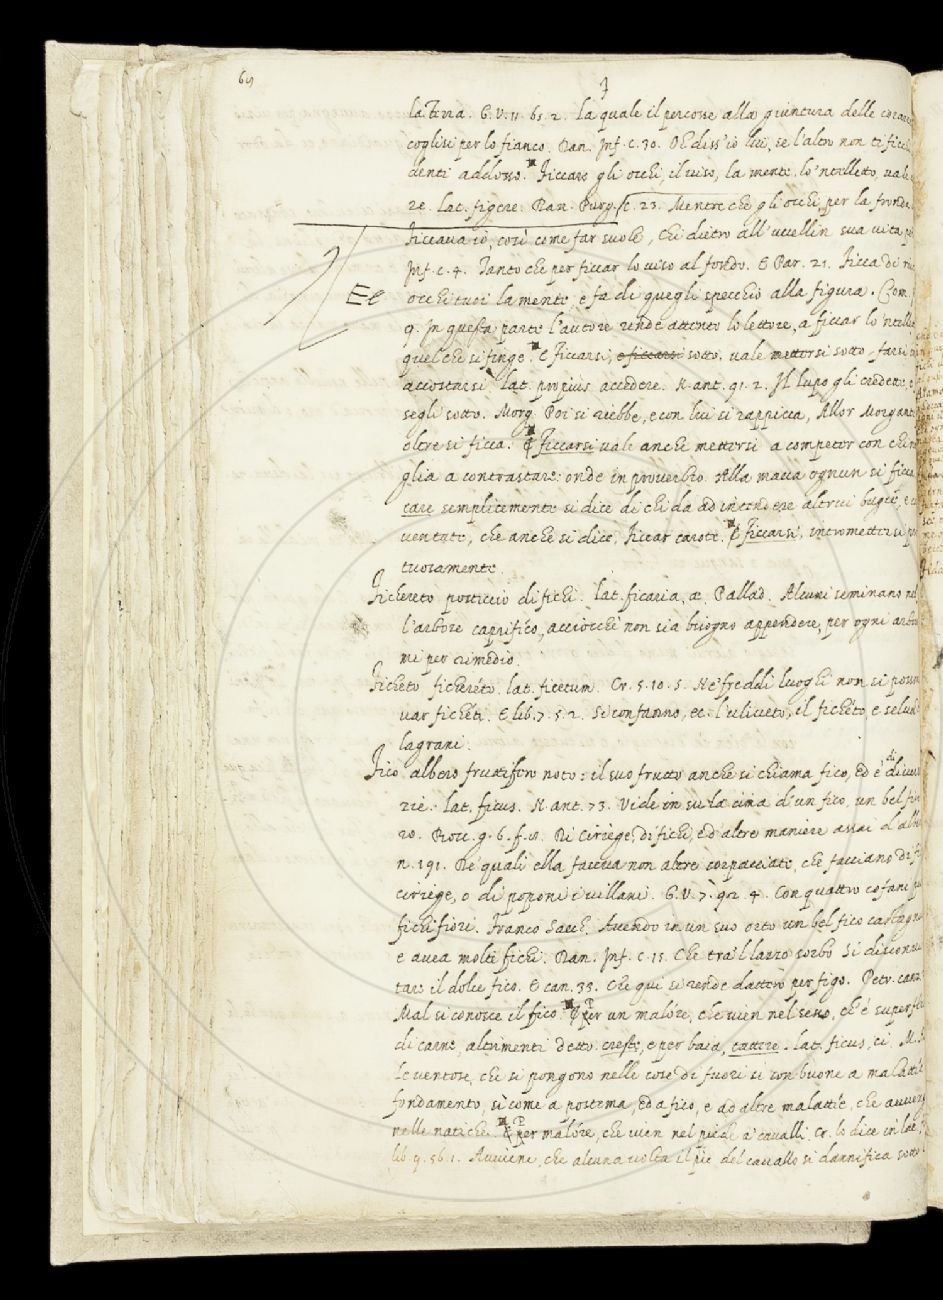 69
F
la Terra. G.V. 11. 65. 2. La quale il percosse alla giuntura delle coraz
cogli si per lo fianco. Dan. Inf. c. 30. Ed diss'io lui, se l'altro non ti ficchi
denti addosso. Ficcare gli occhi, il viso, la mente, lo 'ntelletto, vale
re. lat. figere. Dan. Purg. c. 23. Mentre che gli occhi per la fronda
ficcava io, così come far suole, Chi dietro all'uccellin sua vita p
Inf. c. 4. Tanto che per ficcar lo viso al fondo. E Par. 21. Ficca di ri
Et
occhi tuoi la mente e fa di quegli specchio alla figura. Com.
9. In questa parte l'autore rende attento lo lettore, a ficcar lo 'ntelle
quel che si finge. E Ficcarsi, e ficcarsi sotto, vale mettersi sotto farsi
accostarsi lat. propius accedere. N. ant. 91. 2. Il lupo gli credette, e
segli sotto. Morg. Poi si riebbe, e con lui si rappicca, Allor Morgant
oltre si ficca. E ficcarsi vale anche mettersi a competer con chi n
glia a contrastare: onde in proverbio. Alla macca ognun si ficca
care semplicemente si dice di chi da ad intendere altrui bugie, e
ventate, che anche si dice, Ficcar carote. E ficcarsi, intromettersi p
tuosamente.
Ficereto posticcio di fichi. lat. ficaria, æ. Pallad. Alcuni seminano nel
l'arbore caprifico, acciocchè non sia bisogno appendere, per ogni arbo
mi per rimedio.
Ficheto ficheréto. lat. ficetum. Cr. 5. 10. 5. Ne' freddi luoghi non si posson
var fichéti. E lib. 7. 5. 2. Si confanno, ec. l'uliveto, il fichéto, e selun
lagrani.
Fico albero fruttifero noto: il suo frutto anche si chiama fico, ed è di diver
rie. lat. ficus. N. ant. 73. Vide in su la cima d'un fico, un bel fi
ro. Bocc. g. 6. f. 10. Di ciriege, di fichi, ed altre maniere assai d'albe
n. 191. De' quali ella faceva non altre corpacciate, che facciano di fi
ciriege, o di poponi i villani. G.V. 7. 92. 4. Con quattro cofani p
fichi fiori. Franco Sacch. Avendo in un suo orto un bel fico castagno
e avea molti fichi. Dan. Inf. c. 15. Che tra 'l lazzo sorbo Si disconv
tare il dolce fico. E can. 33. Che qui si rende dattero per figo. Petr. canz.
Mal si conosce il fico. E per un malóre, che vien nel sesso, ch'è superf
di carne, altrimenti detto creste, e per baia, cattire. lat. ficus, ci. M. A
Le ventose, che si pongono nelle cose di fuori si son buone a malattie
fondamento, sì come a postema, ed a fico, e ad altre malattie, che avven
nelle natiche. E per malóre, che vien nel piede a' cavalli. Cr. lo dice in lat.
lib. 9. 56. 1. Avviene, che alcuna volta il piè del cavallo si dannifica sotto